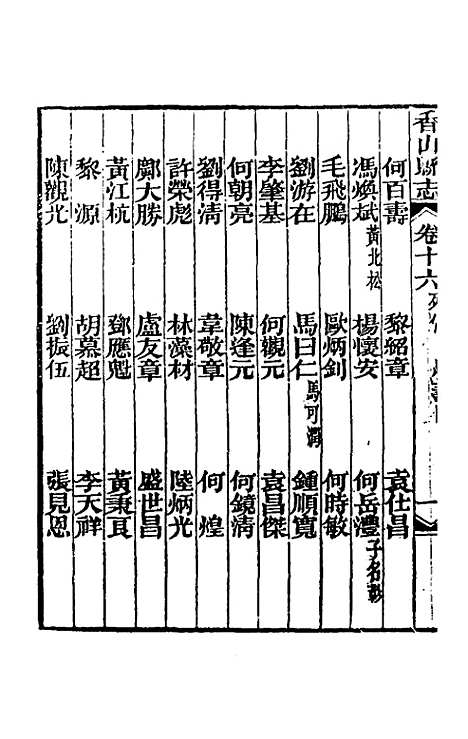 香山縣志 卷十六 列傳
何百壽 黎紹章 袁仕昌
馮煥斌 黃北松 楊懷安 何岳澧 子名彰
毛飛鵬 歐炳釗 何時敏
劉游在 馬曰仁 馬可潤 鍾順寬
李肇基 何觀元 袁昌傑
何朝亮 陳逢元 何鏡清
劉得清 韋敬章 何煌
許榮彪 林藻材 陸炳光
鄺大勝 盧友章 盛世昌
黃江杭 鄧應魁 黃秉良
黎源 胡慕超 李天祥
陳觀光 劉振伍 張見恩